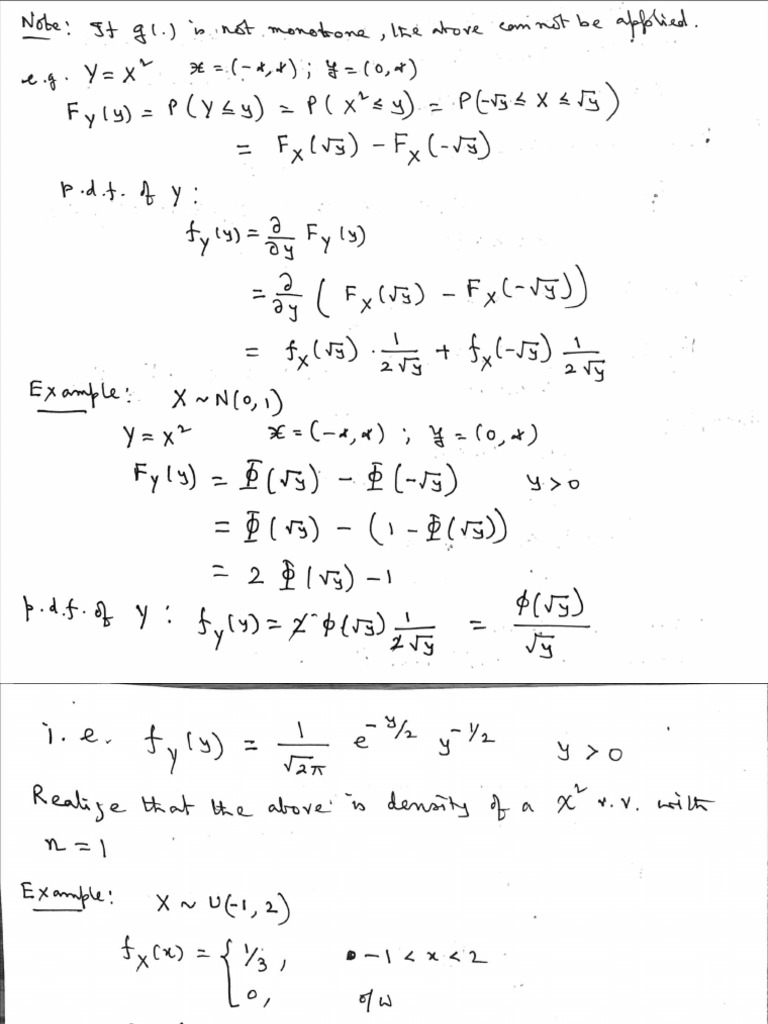 Note: If g(.) is not monotone, the above cannot be applied.
e.g. Y = X² 𝓧 = (-∝, ∝) ; 𝓨 = (0, ∝)
F_Y(y) = P(Y ≤ y) = P(X² ≤ y) = P(-√y ≤ X ≤ √y)
= F_X(√y) - F_X(-√y)
p.d.f. of Y :
f_Y(y) = ∂/∂y F_Y(y)
= ∂/∂y ( F_X(√y) - F_X(-√y))
= f_X(√y) · 1/2√y + f_X(-√y) 1/2√y
Example: X ~ N(0, 1)
Y = X² 𝓧 = (-∝, ∝) ; 𝓨 = (0, ∝)
F_Y(y) = Φ(√y) - Φ(-√y) y > 0
= Φ(√y) - (1 - Φ(√y))
= 2 Φ(√y) - 1
p.d.f. of Y : f_Y(y) = 2 ϕ(√y) 1/2√y = ϕ(√y)/√y
i.e. f_Y(y) = 1/√2π e^{-y/2} y^{-1/2} y > 0
Realize that the above is density of a χ² r.v. with
n = 1
Example: X ~ U(-1, 2)
f_X(x) = { 1/3, -1 < x < 2
0, o/w